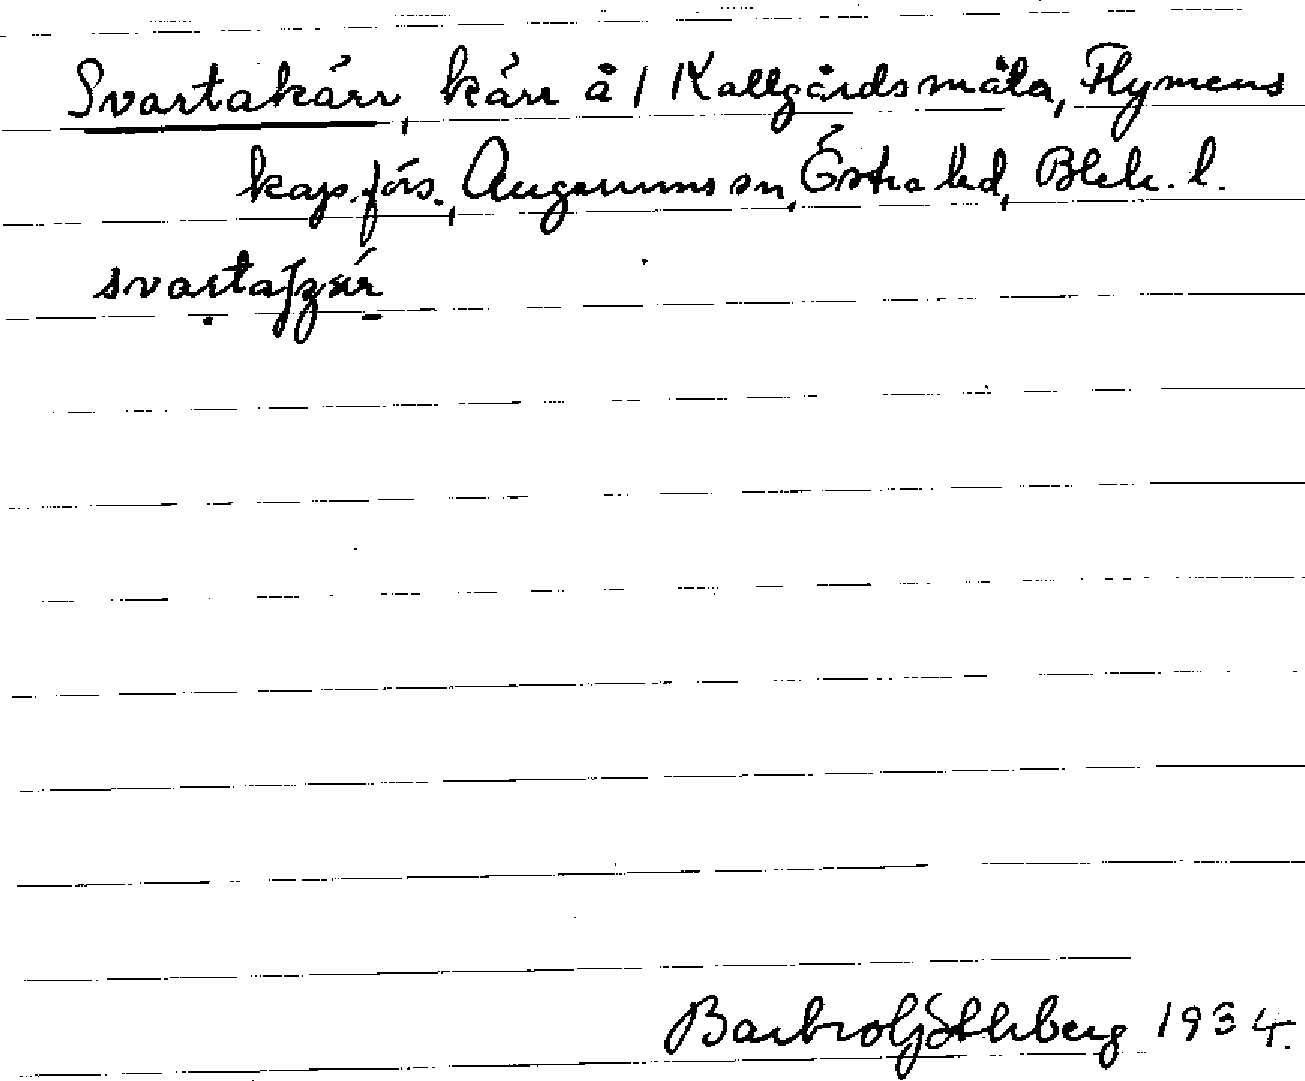 Svartakärr, kärr å 1 Kallgårdsmåla, Flymens
kap.förs., Augerums sn, Östra hd, Blek. l.
Barbro Göthberg 1934.